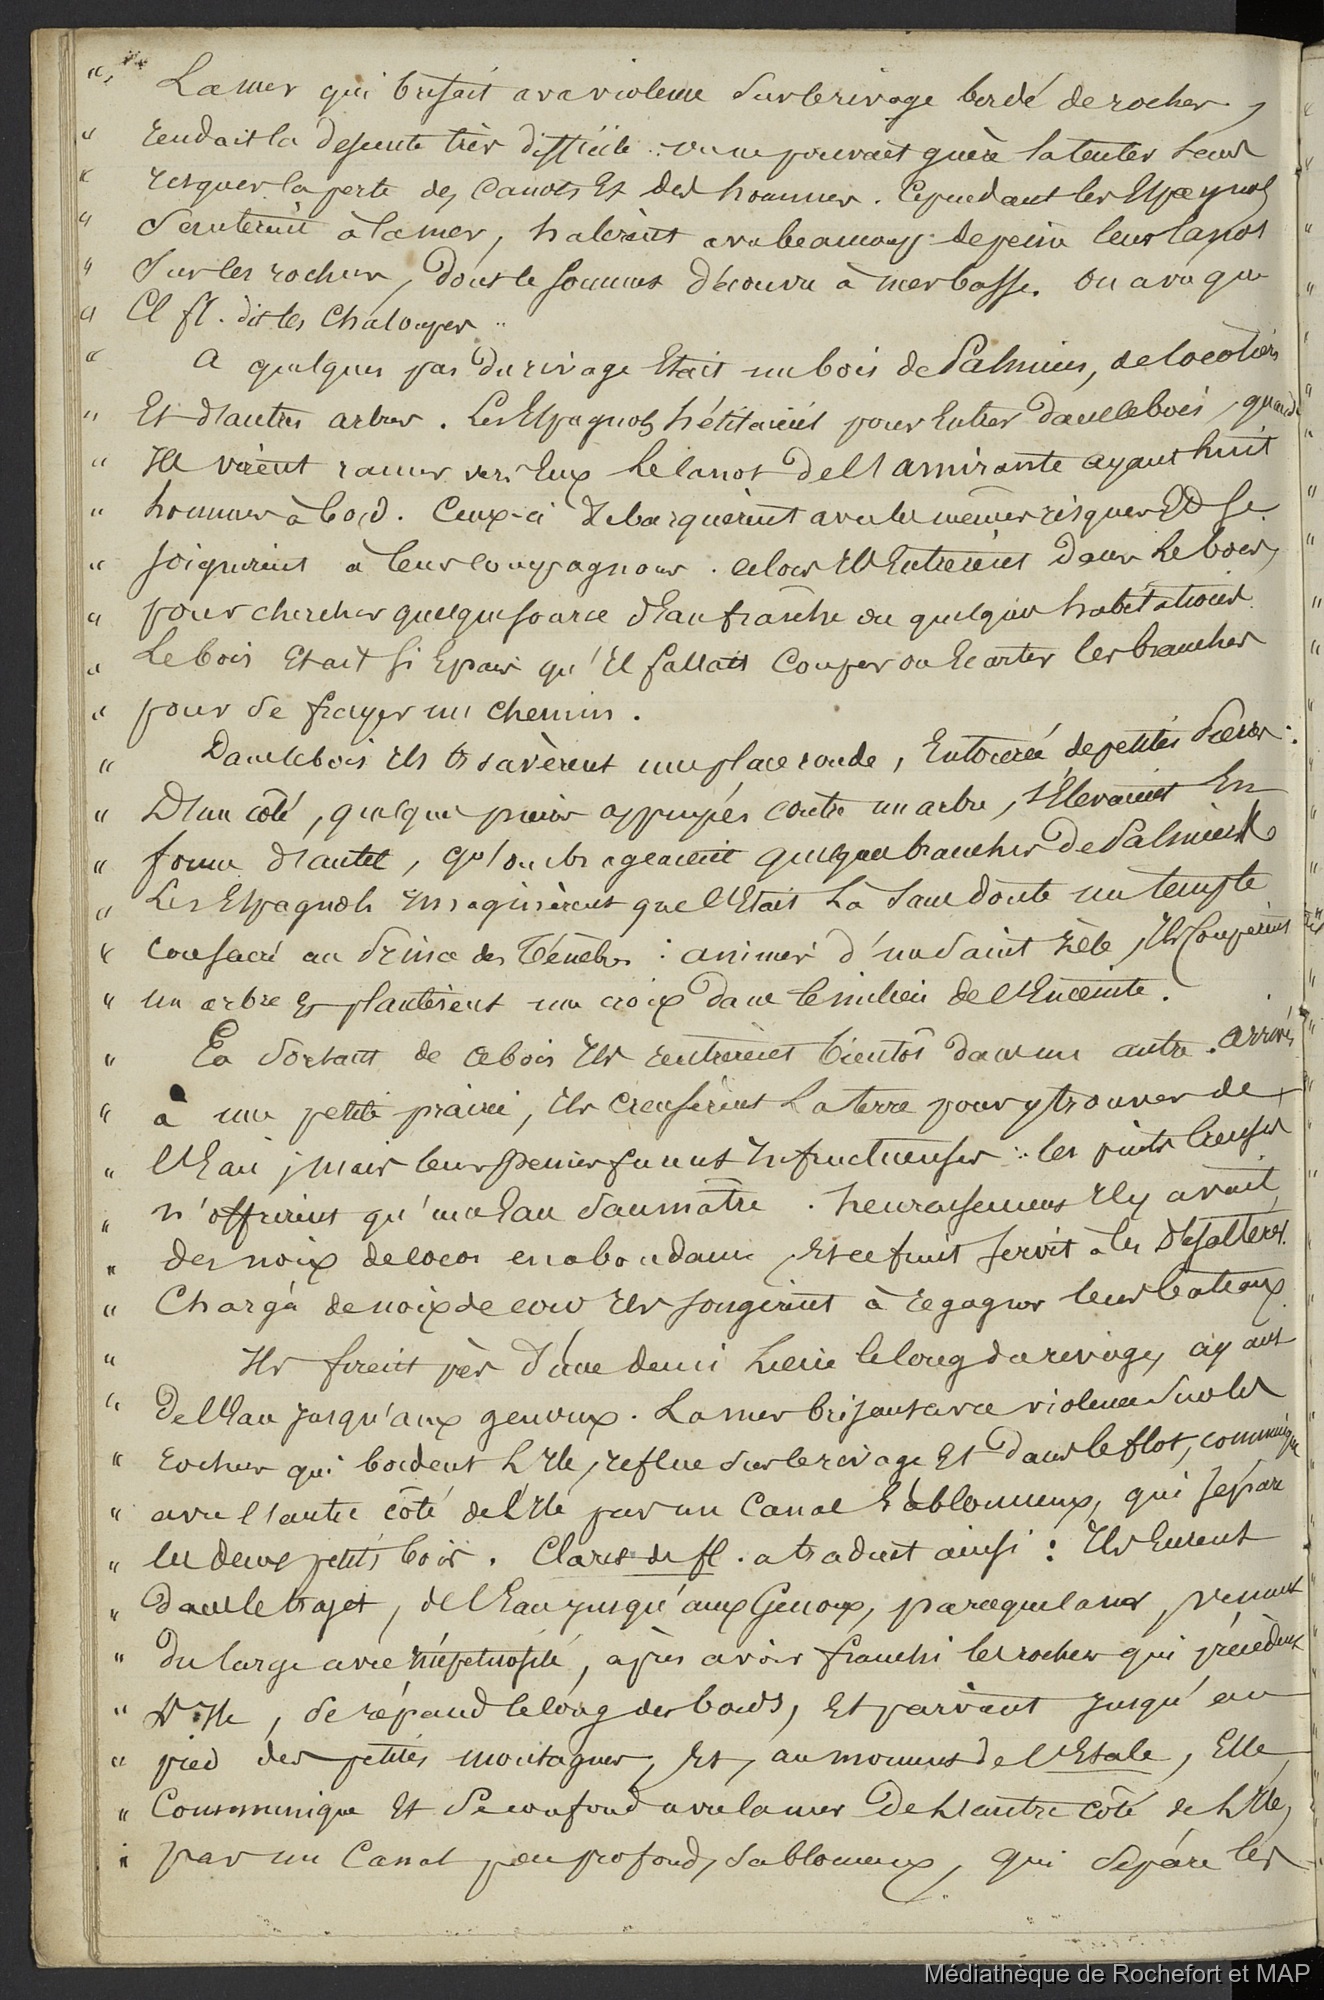 " La mer qui brisait avec violence sur le rivage bordé de rochers,
" rendait la descente très difficile : on ne pouvait guère la tenter sans
" risquer la perte des canots Et des hommes. Cependant les Espagnols
" Sautèrent à la mer, halèrent avec beaucoup de peine leurs canots
" Sur les rochers, dont le sommet découvre à mer basse. on a vu que
" Cl fl. dit les Chaloupes.
" A quelques pas du rivage Etait un bois de Palmiers, de Cocotiers
" Et d'autres arbres. Les Espagnols hésitaient pour Entrer dans le bois, quand
" Ils virent ramer vers Eux le canot de l'amirante ayant huit
" hommes à bord. Ceux-ci débarquèrent avec les mêmes risques Et se
" joignirent à leurs compagnons. alors Ils Entrèrent dans le bois,
" pour chercher quelque source d'Eau fraîche ou quelques habitations.
" Le bois Etait si Epais qu'Il fallait Couper ou Ecarter les branches
" pour se frayer un chemin.
" Dans le bois Ils trouvèrent une place ronde, Entourée de petites Pierres :
" D'un côté, quelques pierres appuyées contre un arbre, s'Elevaient En
" forme d'autel, qu'ombrageaient quelques branches de Palmiers
" Les Espagnols Imaginèrent que c'Etait là sans doute un temple
" consacré au Prince des Ténèbres : animés d'un saint zèle, Ils Coupèrent
" un arbre & plantèrent une croix dans le milieu de l'Enceinte.
" En Sortant de ce bois Ils rentrèrent bientôt dans un autre. arrivés
" à une petite prairie, Ils creusèrent la terre pour y trouver de
" l'Eau ; mais leurs peines furent Infructueuses : les puits Creusés
" n'offrirent qu'une Eau Saumâtre. heureusement Il y avait
" des noix de cocos en abondance, Et ce fruit servit à les Désaltérer.
" Chargés de noix de coco Ils songèrent à regagner leurs bateaux.
" Ils firent près d'une demi lieue le long du rivage, ayant
" De l'Eau Jusqu'aux genoux. La mer brisant avec violence Sur les
" rochers qui bordent l'Ile, reflue sur le rivage Et dans le flot, communique
" avec l'autre côté de l'Ile par un Canal Sablonneux, qui sépare
" les deux petits bois. Claret de fl. a traduit ainsi : Ils Eurent
" Dans le trajet, de l'Eau Jusqu'aux Genoux, parce que la mer, venant
" Du large avec Impétuosité, après avoir franchi les rochers qui précèdent
" L'Ile, se répand le long des bords, Et parvient Jusqu'au
" pied des petites montagnes, Et, au moment de l'Etale, Elle
" Communique Et Se confond avec la mer De l'autre côté de l'Ile,
" par un Canal peu profond, Sablonneux, qui Sépare les
Médiathèque de Rochefort et MAP